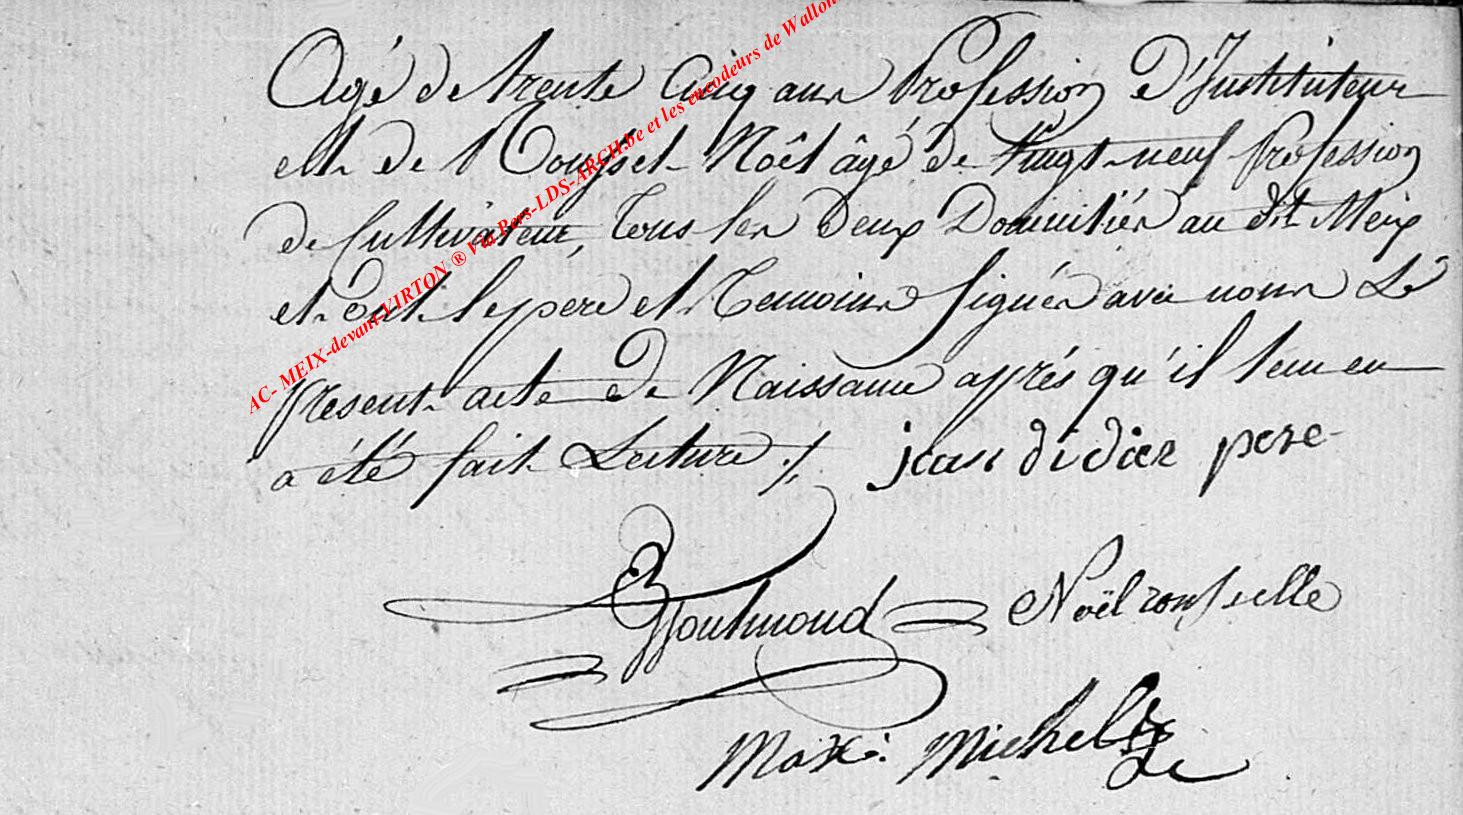 Agé de trente Cinq ans Profession D'Instituteur
et de Rousset Noêl âgé de Vingt-neuf Profession
de Cultivateur, Tous les Deux Domiciliés au dit Meix
et ont le pere et Temoins Signés avec nous Le
present acte de Naissance après qu'il leur en
a été fait Lecture ./. jean didier pere
Noël rousselle
Maxi: Michel
AC- MEIX-devant-VIRTON ® Via Pers-LDS-ARCH.be et les encodeurs de Wallon